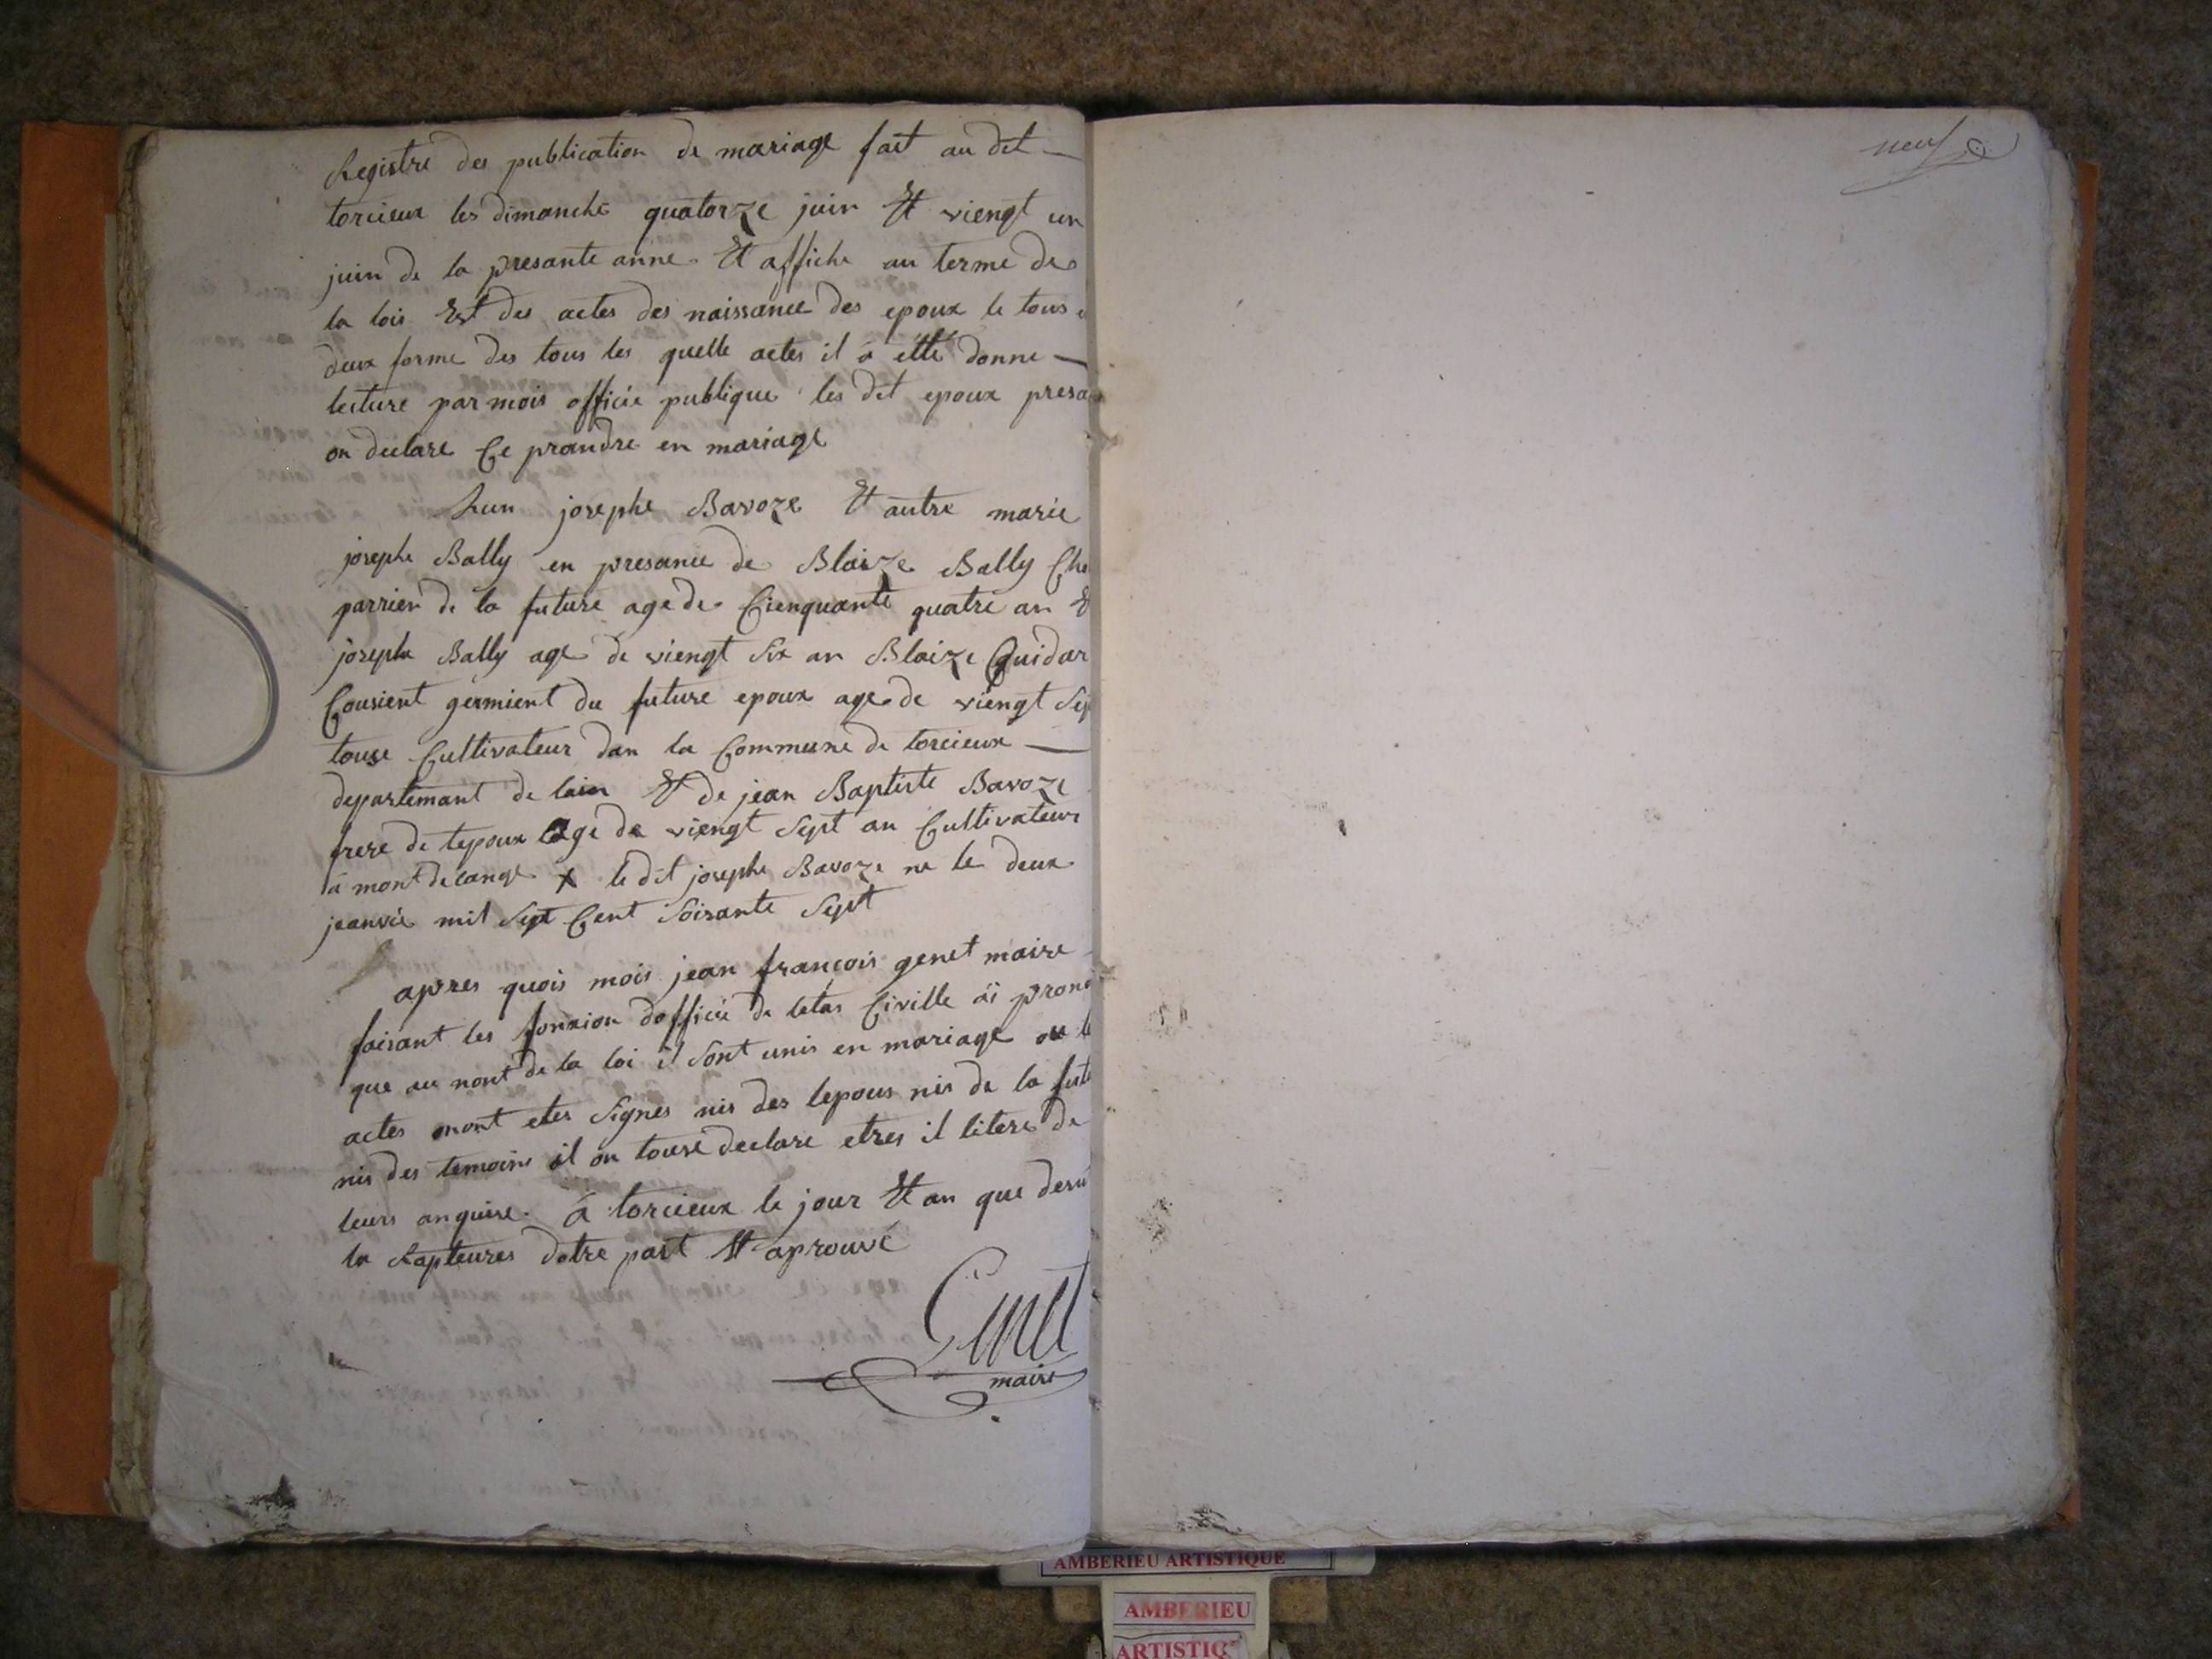 Registre des publication de mariage fait au dit
torcieux les dimanche quatorze juin Et viengt un
juin de la presante anne Et affiche au terme de
la lois Est des actes des naissance des epoux le tous
deux forme des tous les quelle actes il a etté donne
lecture par mois officié publique les dit epoux presa
on declare Ce prandre en mariage
Lun josephe Bavoze Et autre marie
josephe Bally en presance de Blaize Bally
parrien de la future age de Cienquante quatre an Et
josephe Bally age de viengt Six an Blaize Guidar
Cousient germient du future epoux age de viengt Sep
touse Cultivateur dan la Commune de torcieux
departemant de lain Et de jean Baptiste Bavoze
frere de lepoux age de viengt Sept an Cultivateur
a mont de lange X le dit josephe Bavoze ne le deux
jeanvié mil Sept Cent Soixante Sept
apres quois mois jean françois genet maire
faisant les fonxion dofficié de letas Civille ai prono
que au nont de la loi il Sont unis en mariage
actes mont etes Signes nis des lepous nis de la fut
nis des temoins il on touse declare etres il litere de
leurs anquise. a torcieux le jour Et an que desu
la Rapteures dotre part Et aprouvé
Genet
maire
neuf
AMBERIEU ARTISTIQUE
AMBERIEU
ARTISTIQ